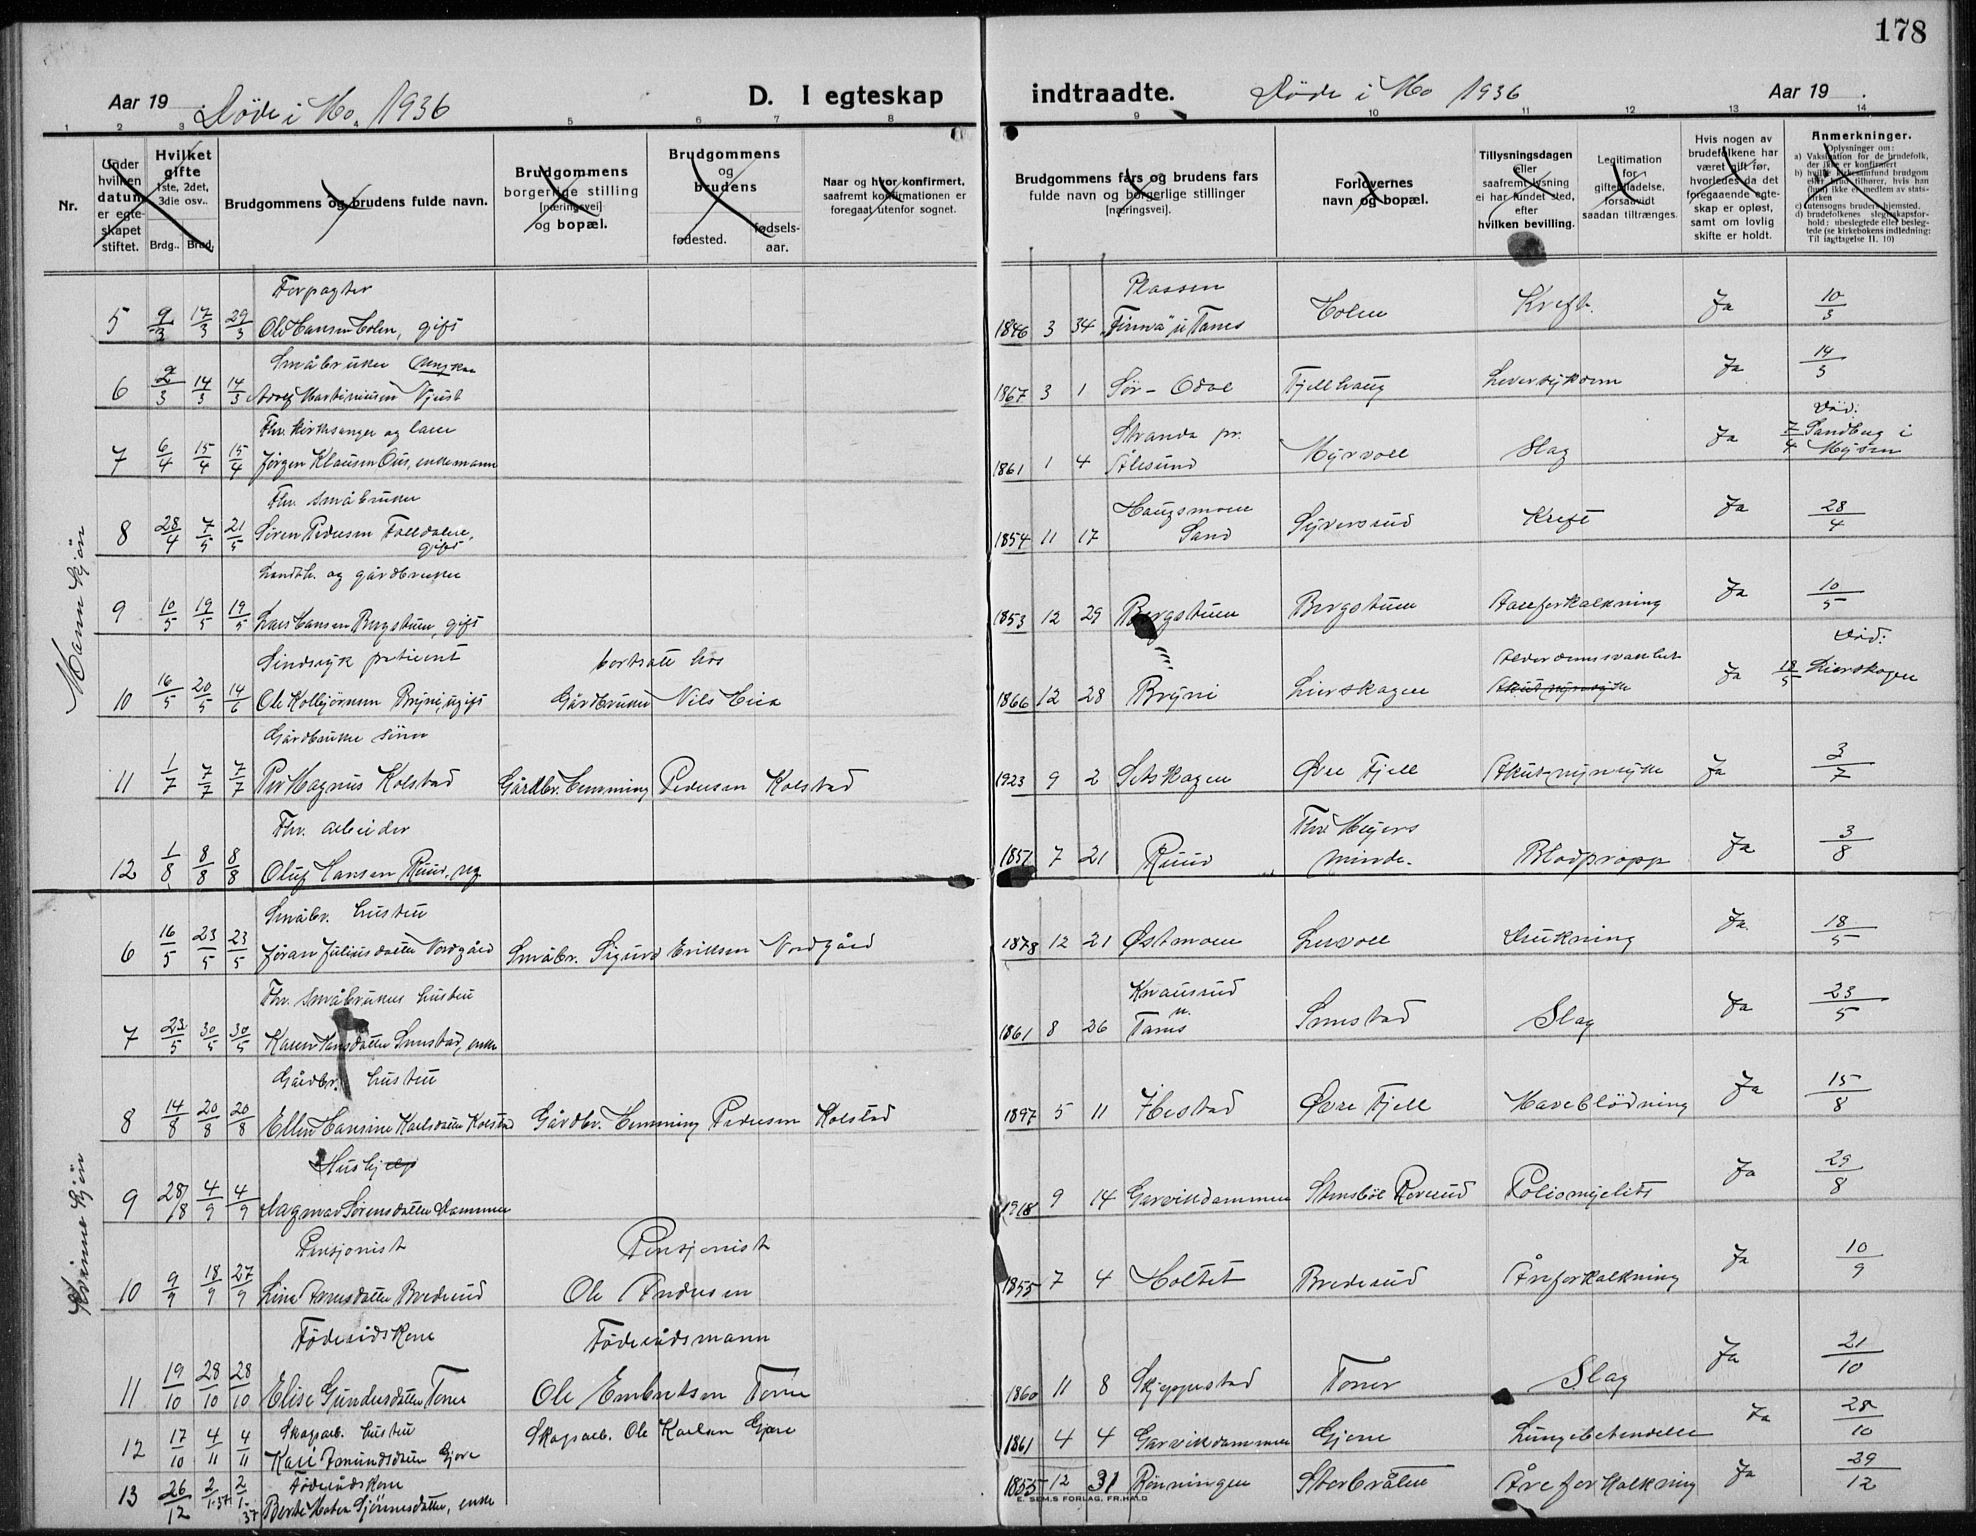 178
Aar 19
Døde i Mo, 1936
D. I egteskap
indtraadte.
Døde i Mo 1936
Aar 19
1 2 3 4 5 6 7 8 9 10 11 12 13 14
Nr.
Under hvilken datum er egteskapet stiftet.
Hvilket gifte 1ste, 2det, 3die osv..
Brdg.. Brud.
Brudgommens og brudens fulde navn.
Brudgommens borgerlige stilling [næringsvei] og bopæl.
Brudgommens og brudens
fødested. fødselsaar.
Naar og hvor konfirmert, saafremt konfirmationen er foregaat utenfor sognet.
Brudgommens fars og brudens fars fulde navn og borgerlige stillinger [næringsvei].
Forlovernes navn og bopæl.
Tillysningsdagen eller saafremt lysning ei har fundet sted, efter hvilken bevilling.
Legitimation for giftertilladelse, forsaavidt saadan tiltrænges.
Hvis nogen av brudefolkene har været gift før, hvorledes da det foregaaende egteskap er opløst, samt om lovlig skifte er holdt.
Anmerkninger.
Oplysninger om:
Mannkjøn
5 9/3 17/3 29/3 Forpagter Ole Hansen Holen, gift 1846 3 34 Plassen "Finnvæ" u Tanes Holen Kreft. Ja 10/3
6 2/3 14/3 14/3 Småbruker Adolf Martiniusen 1867 3 1 Sør-Odal Fjellhaug Leversykdom Ja 14/3
7 6/4 15/4 15/4 Fhv. kirkesanger og lærer Jørgen Klausen Ous, enkemann 1861 1 4 Stranda pr. Ålesund Myrvoll Slag Ja 7/4 Død: Sandberg i Mysen
8 28/4 7/5 21/5 Fhv. småbruker Søren Pedersen Falldalen, gift 1854 11 17 Haugsmoen Sand Syversrud Kreft Ja 28/4
9 10/5 19/5 19/5 Landh. og gårdbruker Lars Hansen Bergstuen, gift 1853 12 29 Bergstuen Bergstuen Aareforkalkning Ja 10/5
10 16/5 20/5 14/6 Sindssyk patient Ole Kolbjørnsen Bryni, ugift bortsatt hos Gårdbruker Nils Eia 1866 12 28 Bryni Lierskogen Alderdomssvakhet Ja 18/5 Død: Lierskogen
11 1/7 7/7 7/7 Gårdbruker sønn Per Magnus Kolstad Gårdbr. Hemming Pedersen Kolstad 1923 9 2 Setskogen Øvre Fjell Akut nyresyke Ja 3/7
12 1/8 8/8 8/8 Fhv. arbeider Oluf Hansen Ruud, ug 1851 7 21 Ruud Thv. Meyers minde. Blodpropp Ja 3/8
Kvinnekjøn
6 16/5 23/5 23/5 Småbr. hustru Jøran Juliusdatter Nordgård Småbr. Sigurd Eriksen Nordgård 1878 12 21 Østmoen Luvoll Drukning Ja 18/5
7 23/5 30/5 30/5 Fhv. småbrukers hustru Karen Hansdatter Smestad, enke 1861 8 26 Knausrud u. Tanes Smestad Slag Ja 23/5
8 14/8 20/8 20/8 Gårdbr. hustru Ellen Hansine Karlsdatter Kolstad Gårdbr. Hemming Pedersen Kolstad 1897 5 11 Hestad Øvre Fjell Maveblødning Ja 15/8
9 28/8 4/9 4/9 Hushjelp Dagmar Sørensdatter Dammen 1918 9 14 Garvikdammen Poliomyelits Ja 29/8
10 9/9 18/9 27/9 Pensjonist Line Arnesdatter Brederud Pensjonist Ole Andersen 1855 7 4 Holtet Brederud Åreforkalkning Ja 10/9
11 19/10 28/10 28/10 Føderådskone Elise Gundersdatter Toner Føderådsmann Ole Embretsen Toner 1860 11 8 Skjeppestad Toner Slag Ja 21/10
12 17/10 4/11 4/11 Skogsarb. hustru Kari Amundsdatter Gjere Skogsarb. Ole Karlsen Gjere 1861 4 4 Garvikdammen Gjere Lungebetendelse Ja 28/10
13 26/12 2/1-37 2/1-37 Føderådskone Berte Maten enke 1855 12 31 Rønningen Storbråten Åreforkalkning Ja 29/12
E. SEM.S FORLAG, FR.HALD